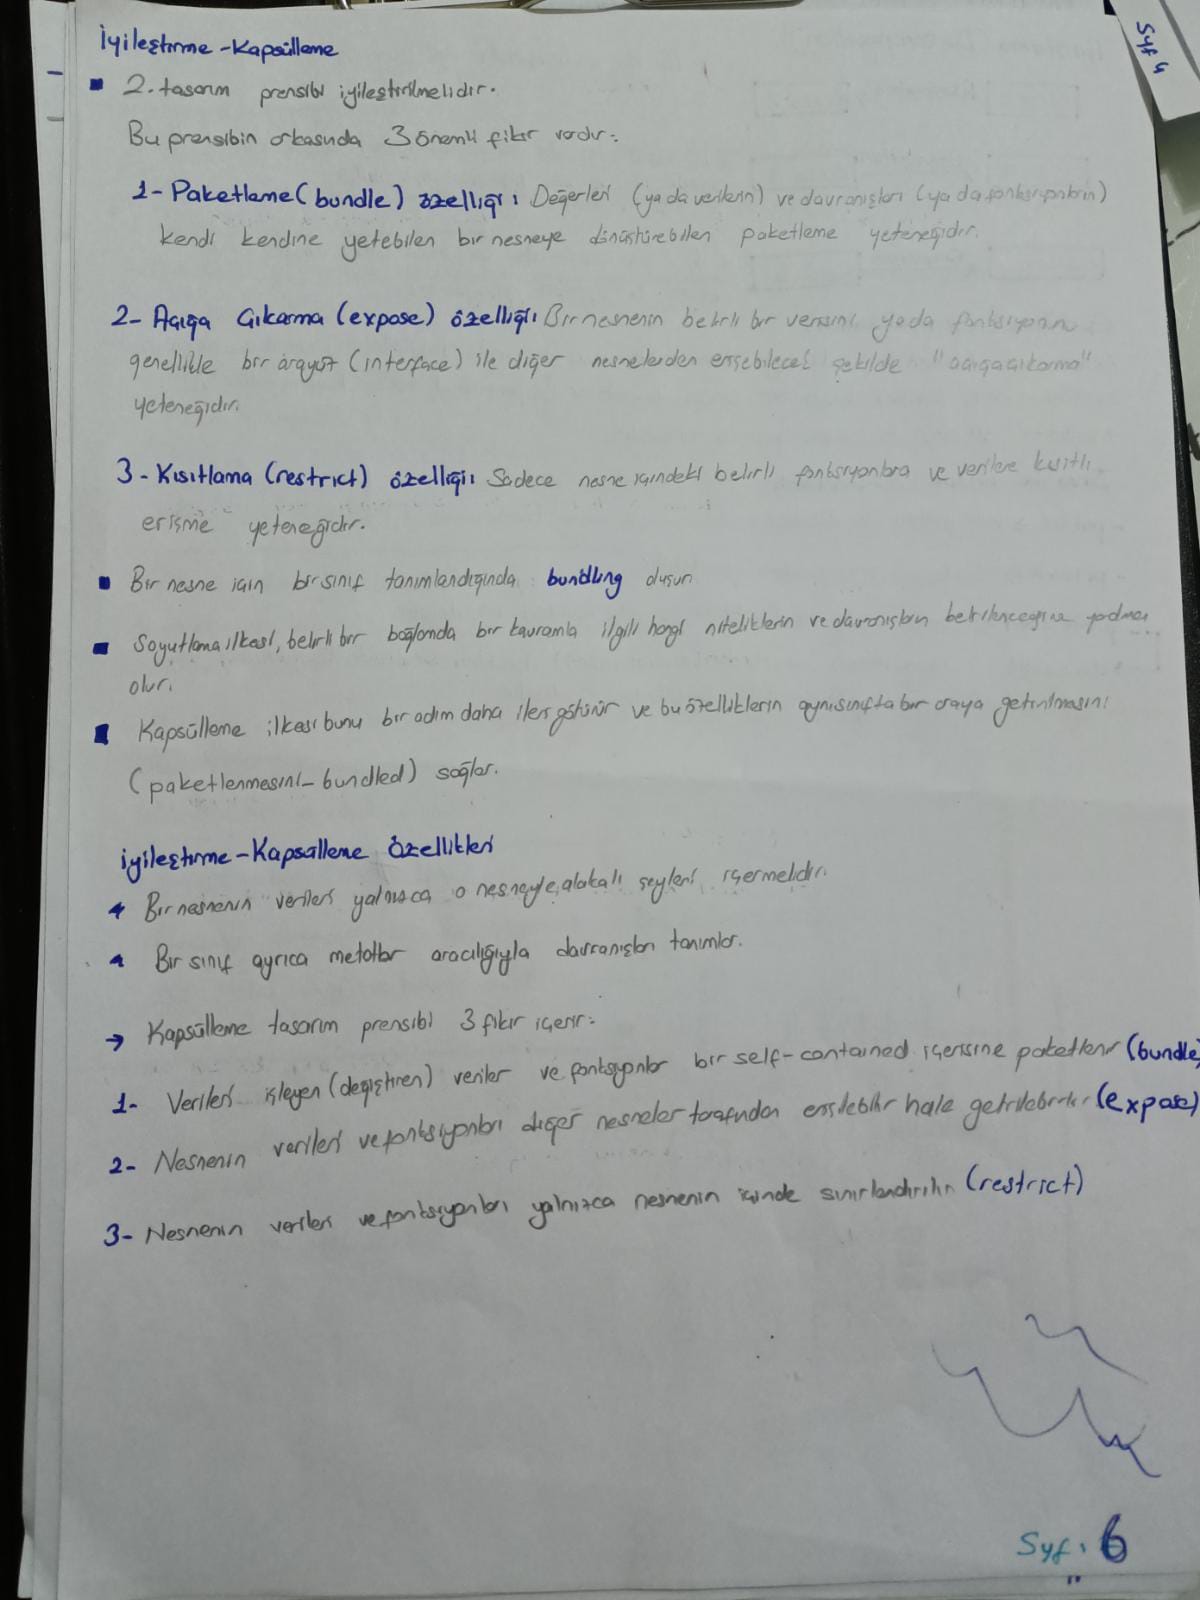 İyileştirme - Kapsülleme
Syf 4
2. tasarım prensibi iyileştirilmelidir.
Bu prensibin arkasında 3 önemli fikir vardır:
1- Paketleme (bundle) özelliği: Değerleri (ya da verilerin) ve davranışları (ya da fonksiyonların)
kendi kendine yetebilen bir nesneye dönüştürebilen paketleme yeteneğidir.
2- Açığa Çıkarma (expose) özelliği: Bir nesnenin belirli bir verisini ya da fonksiyonun
genellikle bir arayüz (interface) ile diğer nesnelerden erişebilecek şekilde "açığa çıkarma"
yeteneğidir.
3- Kısıtlama (restrict) özelliği: Sadece nesne içindeki belirli fonksiyonlara ve verilere kısıtlı
erişme yeteneğidir.
Bir nesne için bir sınıf tanımlandığında bundling oluşur
Soyutlama ilkesi, belirli bir bağlamda bir kavramla ilgili hangi niteliklerin ve davranışların belirleneceğine yardımcı
olur.
Kapsülleme ilkesi bunu bir adım daha ileri götürür ve bu özelliklerin aynı sınıfta bir araya getirilmesini
(paketlenmesini - bundled) sağlar.
İyileştirme - Kapsülleme özellikleri
Bir nesnenin verileri yalnızca o nesneyle alakalı şeyleri içermelidir.
Bir sınıf ayrıca metotlar aracılığıyla davranışları tanımlar.
→ Kapsülleme tasarım prensibi 3 fikir içerir:
1- Verileri işleyen (değiştiren) veriler ve fonksiyonlar bir self-contained içerisine paketlenir (bundle)
2- Nesnenin verileri ve fonksiyonları diğer nesneler tarafından erişilebilir hale getirilebilir (expose)
3- Nesnenin verileri ve fonksiyonları yalnızca nesnenin içinde sınırlandırılır (restrict)
Syf: 6